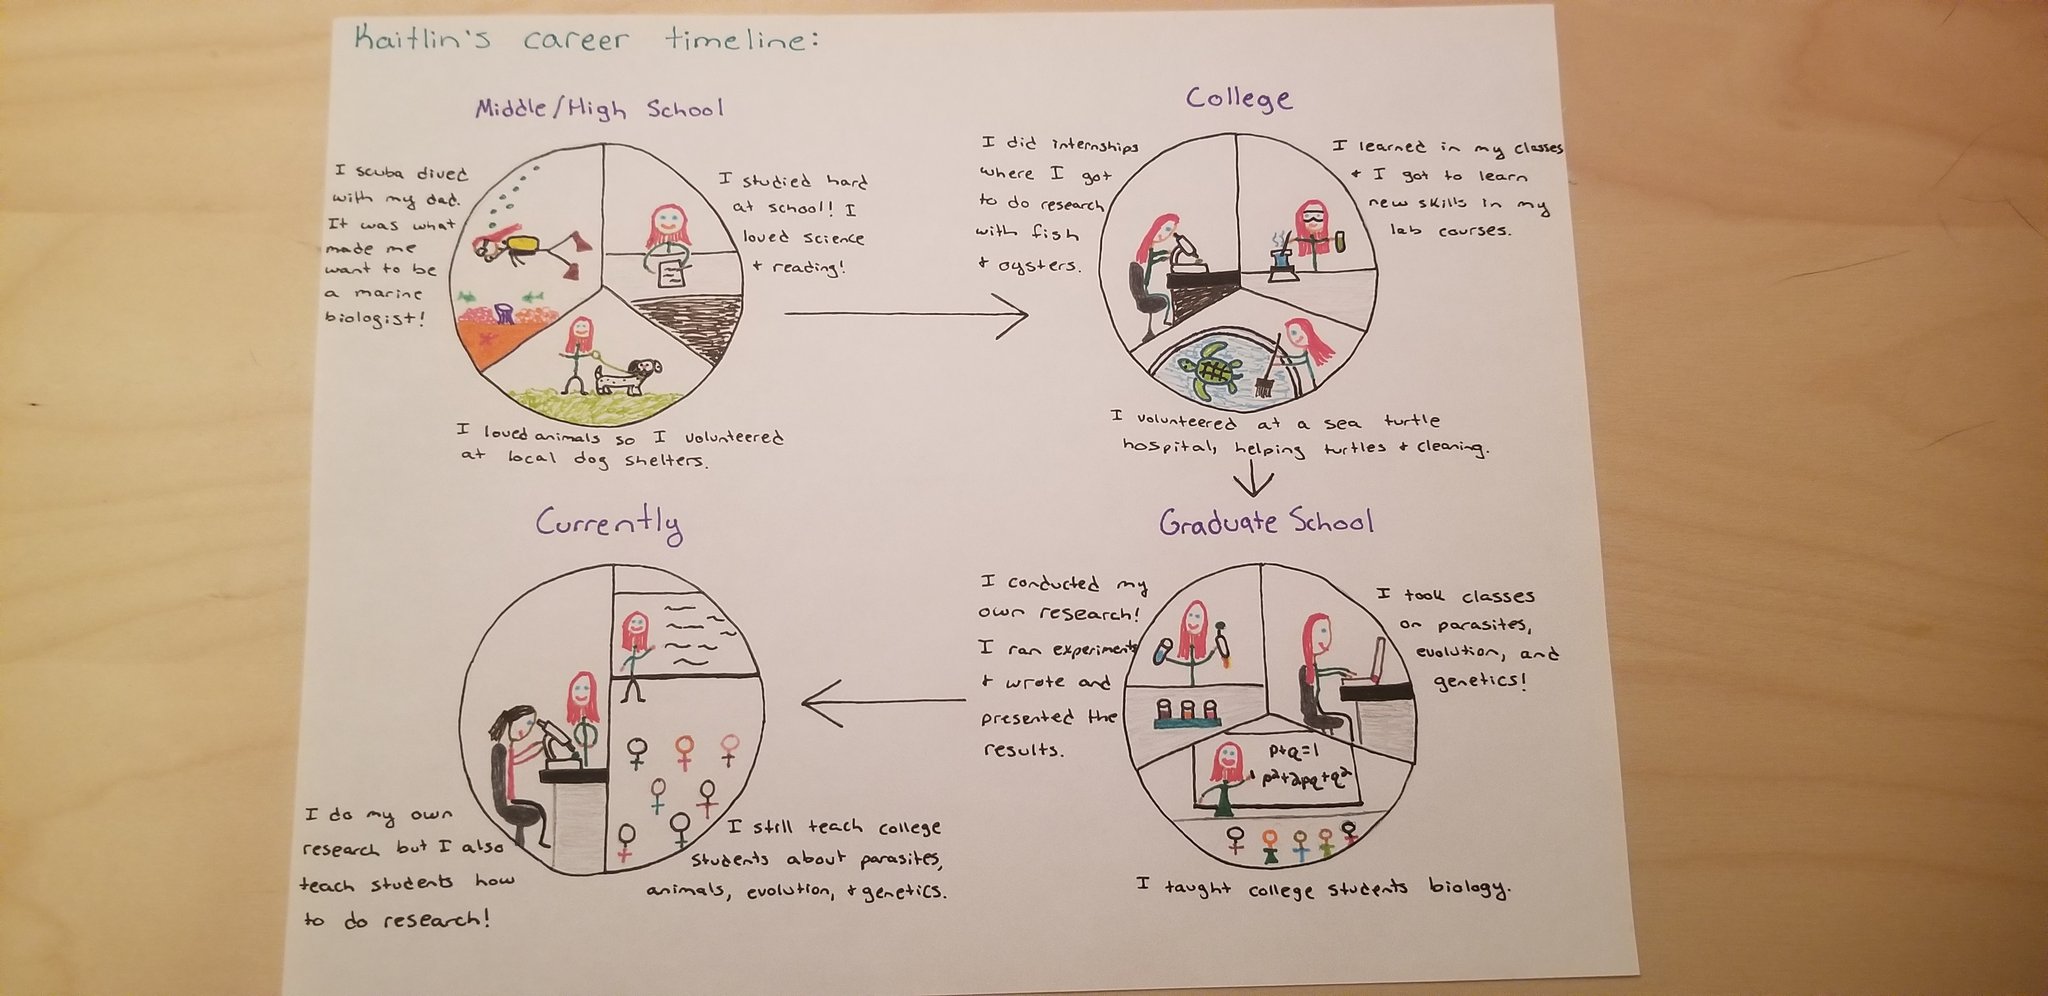 Kaitlin's career timeline:
Middle/High School
I scuba dived
with my dad.
It was what
made me
want to be
a marine
biologist!
I studied hard
at school! I
loved science
+ reading!
I loved animals so I volunteered
at local dog shelters.
College
I did internships
where I got
to do research
with fish
+ oysters.
I learned in my classes
+ I got to learn
new skills in my
lab courses.
I volunteered at a sea turtle
hospital, helping turtles + cleaning.
Graduate School
I conducted my
own research!
I ran experiments
+ wrote and
presented the
results.
I took classes
on parasites,
evolution, and
genetics!
p+q=1
p²+2pq+q²
I taught college students biology.
Currently
I do my own
research but I also
teach students how
to do research!
I still teach college
students about parasites,
animals, evolution, + genetics.